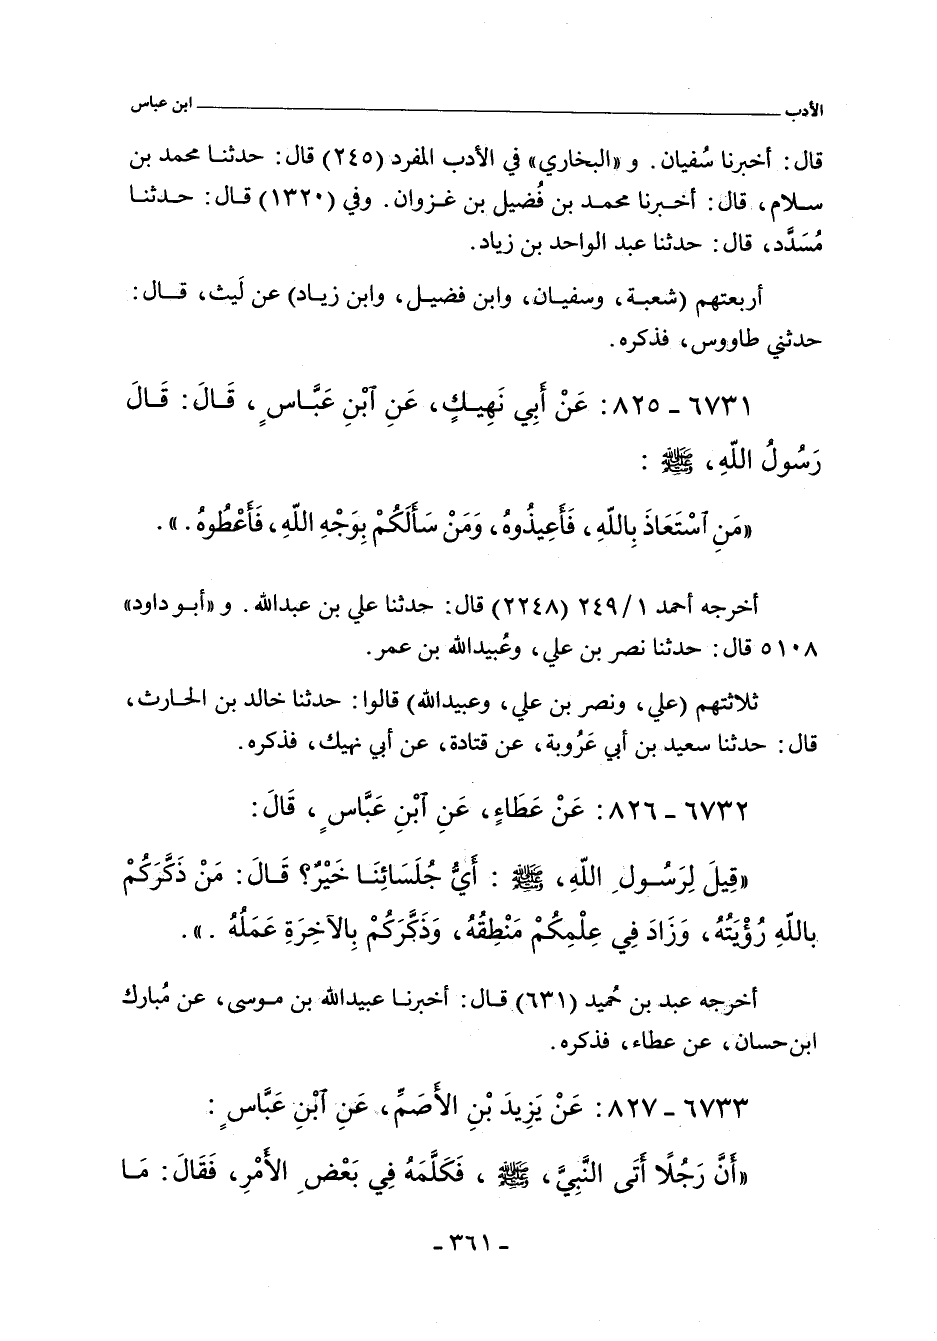 الأدب ابن عباس
قال: أخبرنا سُفيان. و «البخاري» في الأدب المفرد (٢٤٥) قال: حدثنا محمد بن
سلام، قال: أخبرنا محمد بن فُضيل بن غزوان. وفي (١٣٢٠) قال: حدثنا
مُسَدَّد، قال: حدثنا عبد الواحد بن زياد.
أربعتهم (شعبة، وسفيان، وابن فضيل، وابن زياد) عن لَيث، قال:
حدثني طاووس، فذكره.
٦٧٣١ - ٨٢٥: عَنْ أَبِي نَهِيكٍ، عَنِ ٱبْنِ عَبَّاسٍ، قَالَ: قَالَ
رَسُولُ اللّهِ، ﷺ :
«مَنِ ٱسْتَعَاذَ بِاللّهِ، فَأَعِيذُوهُ، وَمَنْ سَأَلَكُمْ بِوَجْهِ اللّهِ، فَأَعْطُوهُ.».
أخرجه أحمد ٢٤٩/١ (٢٢٤٨) قال: حدثنا علي بن عبدالله. و «أبو داود»
٥١٠٨ قال: حدثنا نصر بن علي، وعُبيدالله بن عمر.
ثلاثتهم (علي، ونصر بن علي، وعبيدالله) قالوا: حدثنا خالد بن الحارث،
قال: حدثنا سعيد بن أبي عَرُوبة، عن قتادة، عن أبي نهيك، فذكره.
٦٧٣٢ - ٨٢٦: عَنْ عَطَاءٍ، عَنِ ٱبْنِ عَبَّاسٍ، قَالَ:
«قِيلَ لِرَسُولِ اللّهِ، ﷺ : أَيُّ جُلَسَائِنَا خَيْرٌ؟ قَالَ: مَنْ ذَكَّرَكُمْ
بِاللّهِ رُؤْيَتُهُ، وَزَادَ فِي عِلْمِكُمْ مَنْطِقُهُ، وَذَكَّرَكُمْ بِالآخِرَةِ عَمَلُهُ .».
أخرجه عبد بن حُميد (٦٣١) قال: أخبرنا عبيدالله بن موسى، عن مُبارك
ابن حسان، عن عطاء، فذكره.
٦٧٣٣ - ٨٢٧: عَنْ يَزِيدَ بْنِ الأَصَمِّ، عَنِ ٱبْنِ عَبَّاسٍ:
«أَنَّ رَجُلًا أَتَى النَّبِيَّ، ﷺ ، فَكَلَّمَهُ فِي بَعْضِ الأَمْرِ، فَقَالَ: مَا
- ٣٦١ -